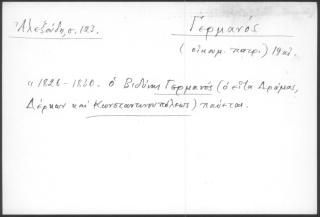 Ἀλεξούδη, σ. 123. Γερμανός
(οἰκουμ. πατρ.) 19 αἰ.
« 1826 - 1830. ὁ Βιδύνης Γερμανός (ὁ εἶτα Δράμας,
Δέρκων καὶ Κωνσταντινουπόλεως) παύεται.